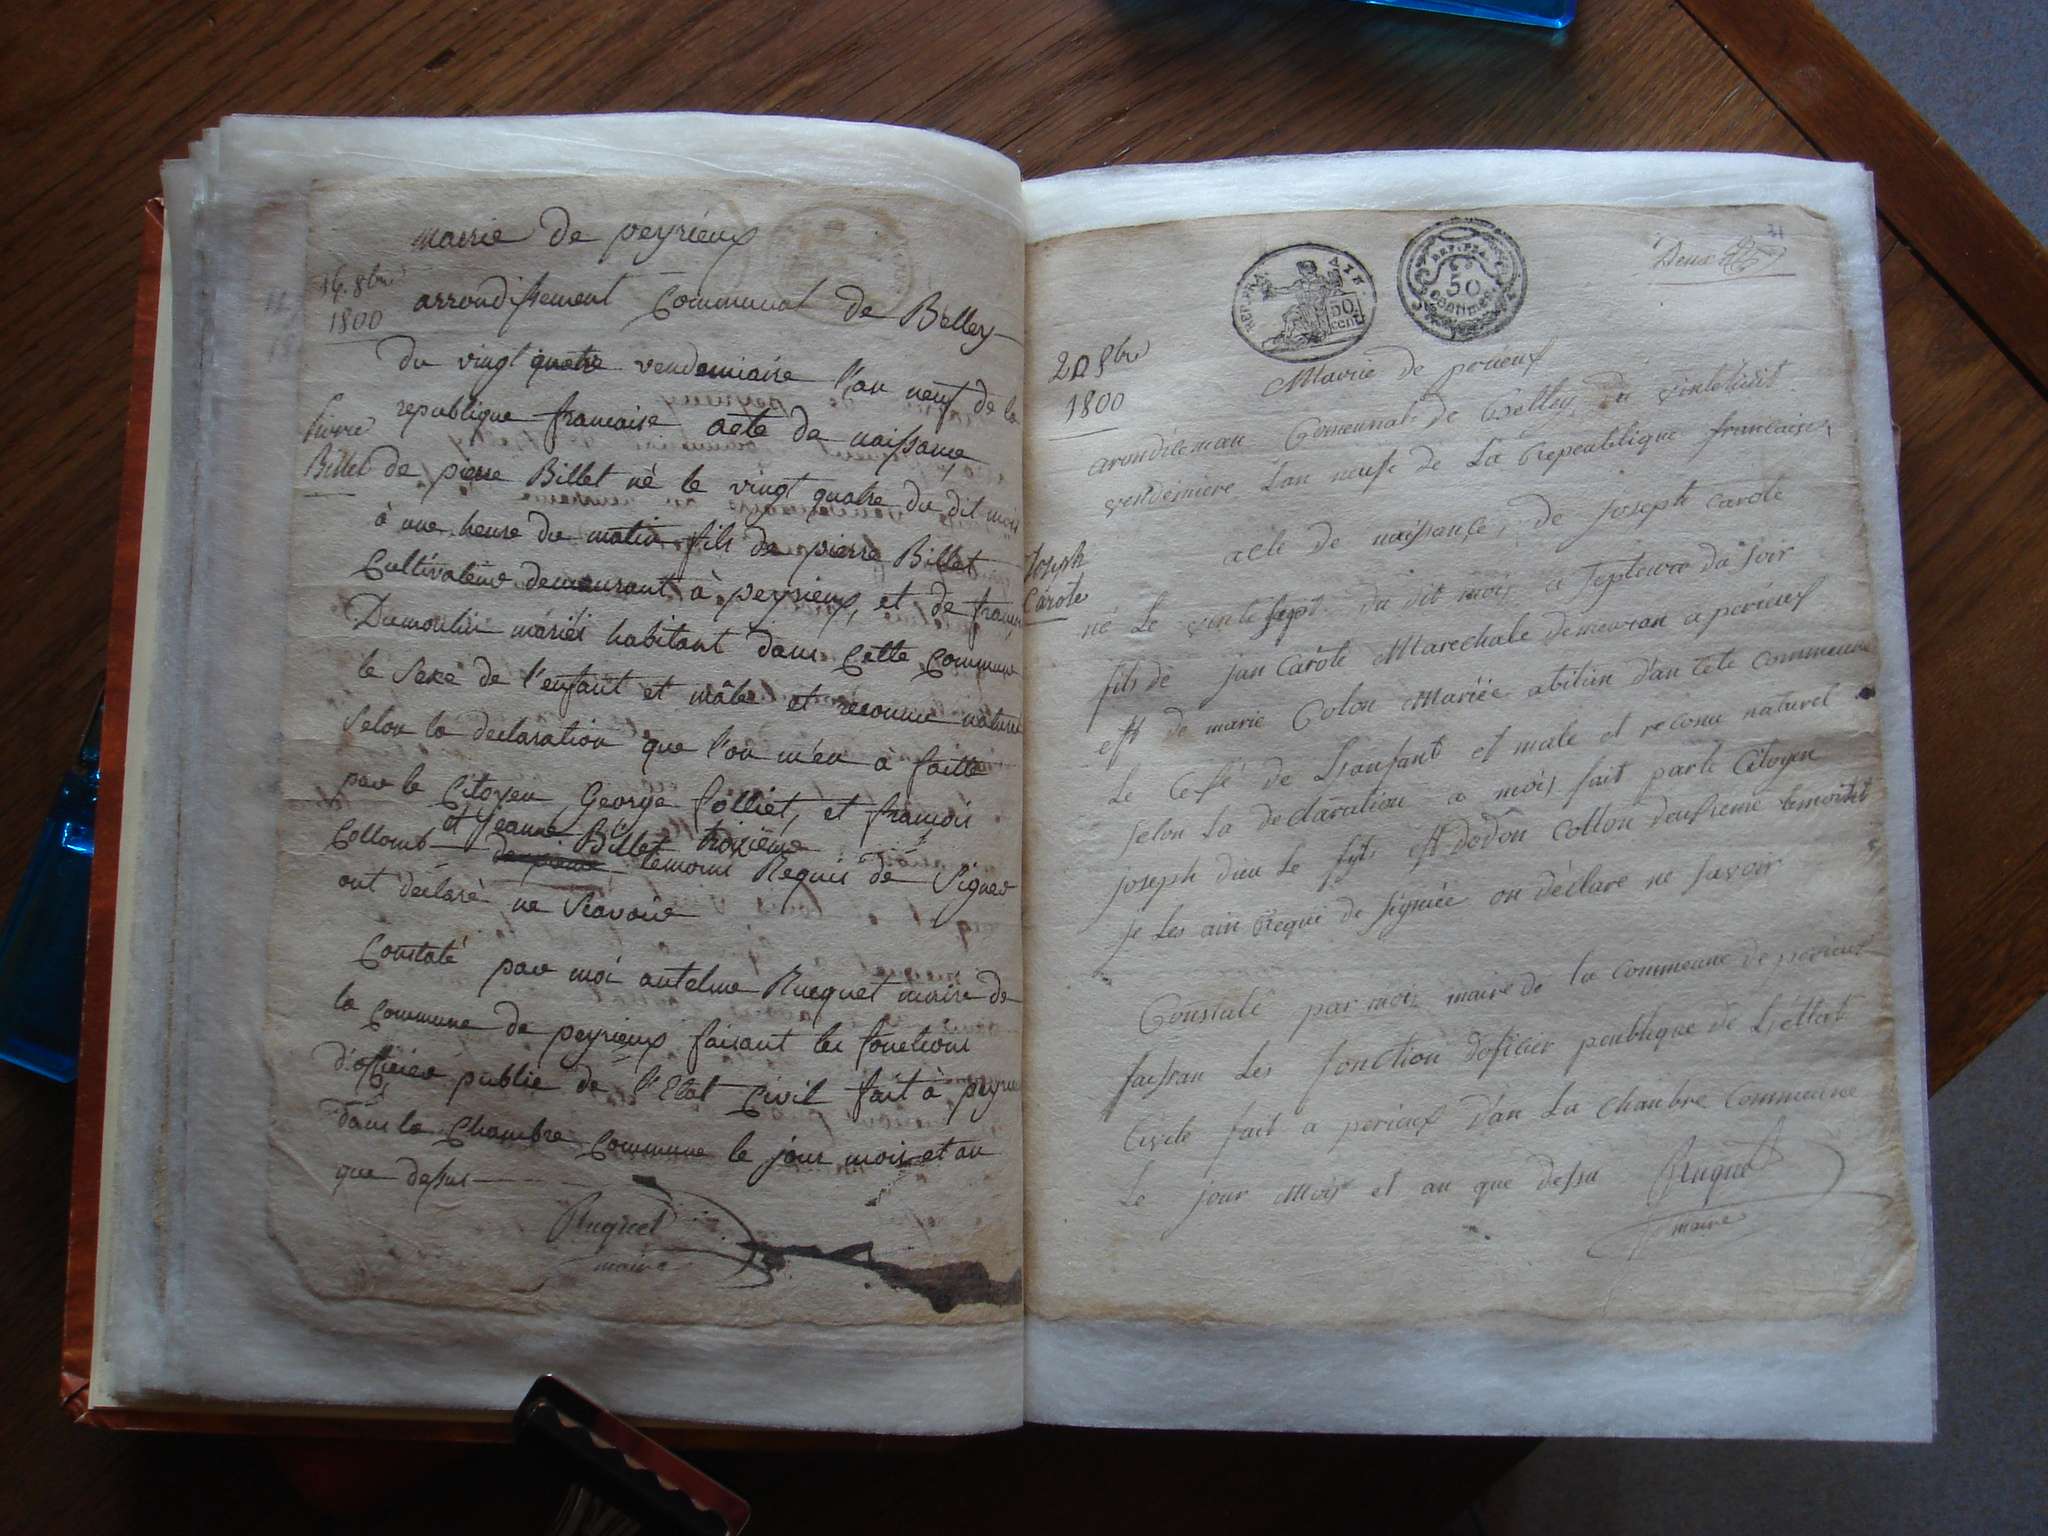 Mairie de peyrieux
16. 8bre
1800
arrondissement Communal de Belley
du vingt quatre vendemiaire l'an neuf de la
republique francaise acte de naissance
pierre
Billet
de pierre Billet né le vingt quatre du dit mois
à une heure du matin fils de pierre Billet
Cultivateur demeurant à peyrieux, et de
Dumoulin mariés habitant dans Cette Commune
le Sexe de l'enfant et mâle et reconnu
Selon la declaration que l'on m'en à faitte
par le Citoyen George folliet, et françois
Collomb et jeanne Billet troxième
temoins Requis de Signer
ont déclaré ne Scavoir
Constaté par moi antelme Ruquet maire de
la Commune de peyrieux faisant les fonctions
d'officier public de l'Etat Civil fait à peyrieux
dans la Chambre Commune le jour mois et an
que dessus
Ruquet
maire
31
Deux
REP. FRA.
50
cent
REP. FRA.
50
CENTIMES
8bre
1800
Mairie de perieux
arondiseman Comennal de Belley du vintetuit
vendemiere Lan neufe de La Repeublique francaise,
acte de naissance, de Joseph Carote
Joseph
Carote
né Le vintesept du dit mois a septeure du soir
fils de jan Carote Marechale demeuran a perieux
est de marie Colon Mariée abitien dan cete commeune
Le Cexé de Lanfant et male et reconu naturel
selon La declaration a mois fait parle Citoyen
joseph dieu Le fyt est dodon Collon deusieme temoint
je Les ain Requi de signiée on déclare ne savoir
Constaté par mois maire de la commeune de perieux
faissan Les fonction dofisier peublique de L'éttat
Civile fait a perieux dan La chanbre commeune
Le jour Mois et an que dessu Ruquet
maire